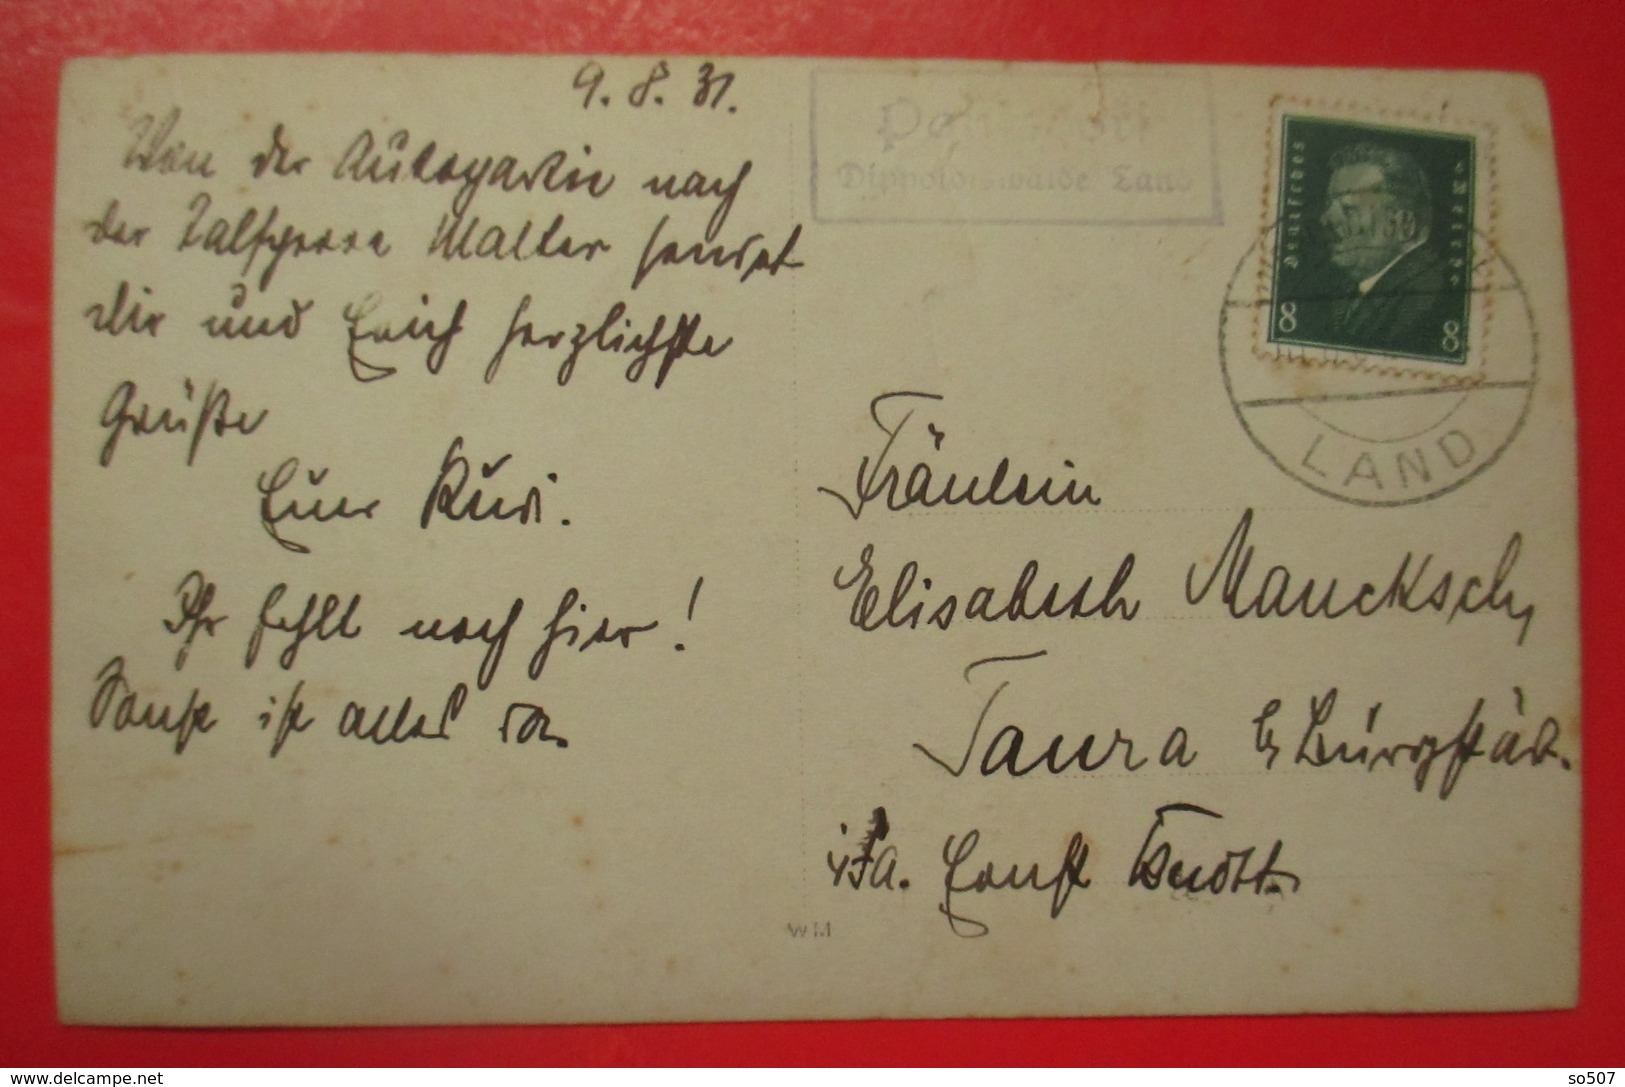 9. 8. 31.
Von der Autopartie nach
der Talsperre Malter sendet
dir und Erich herzlichste
Grüße
Euer Rudi.
Ihr fehlt noch hier!
Sonst ist alles da.
Dippoldiswalde Land
Deutsches
Reich
8
8
LAND
Fräulein
Elisabeth Maucksch,
Taura b/ Burgstäd.
Fa. Ernst
WM
delcampe.net
so507